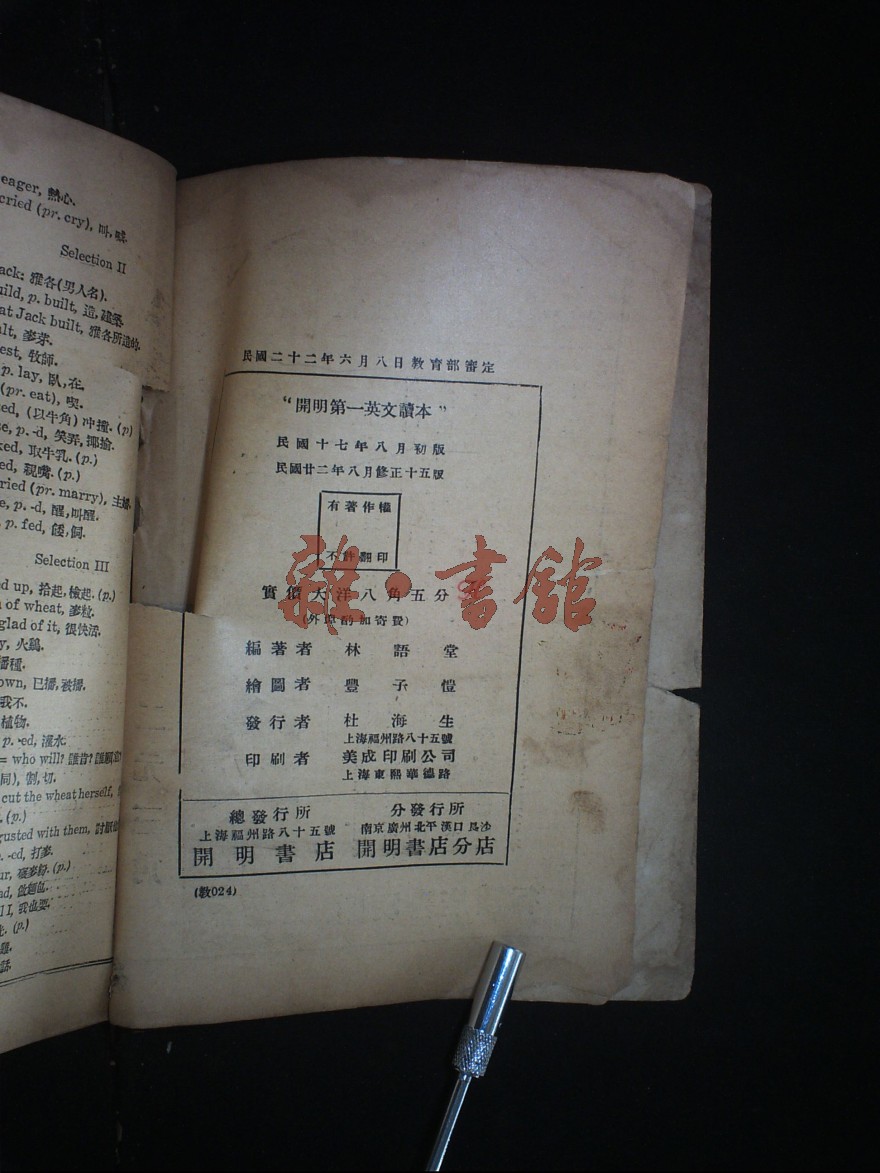 eager, 熱心.
cried (pr. cry), 叫,喊.
Selection II
ack: 雅各(男人名).
uild, p. built, 造,建築.
at Jack built, 雅各所造的.
alt, 麥芽.
est, 牧師.
p. lay, 臥,在.
(pr. eat), 喫.
ed, (以牛角) 冲撞. (p)
se, p. -d, 笑弄,揶揄.
ked, 取牛乳. (p.)
ed, 親嘴. (p.)
ried (pr. marry), 主婚.
e, p. -d, 醒,叫醒.
p. fed, 餧,飼.
Selection III
ed up, 拾起,檢起. (p.)
n of wheat, 麥粒.
glad of it, 很快活.
y, 火鷄.
播種.
own, 已播,被播.
我不.
植物.
p. -ed, 灌水.
= who will? 誰肯?
同), 割,切.
cut the wheat herself,
(p.)
gusted with them,
-ed, 打麥.
ur, 碾麥粉. (p.)
ad, 做麵包.
(p.)
民國二十二年六月八日教育部審定
“開明第一英文讀本”
民國十七年八月初版
民國廿二年八月修正十五版
有著作權
不許翻印
雜·書館
實價大洋八角五分
(外埠酌加寄費)
編著者 林語堂
繪圖者 豐子愷
發行者 杜海生
上海福州路八十五號
印刷者 美成印刷公司
上海東熙華德路
總發行所
上海福州路八十五號
開明書店
分發行所
南京廣州北平漢口長沙
開明書店分店
(敎024)